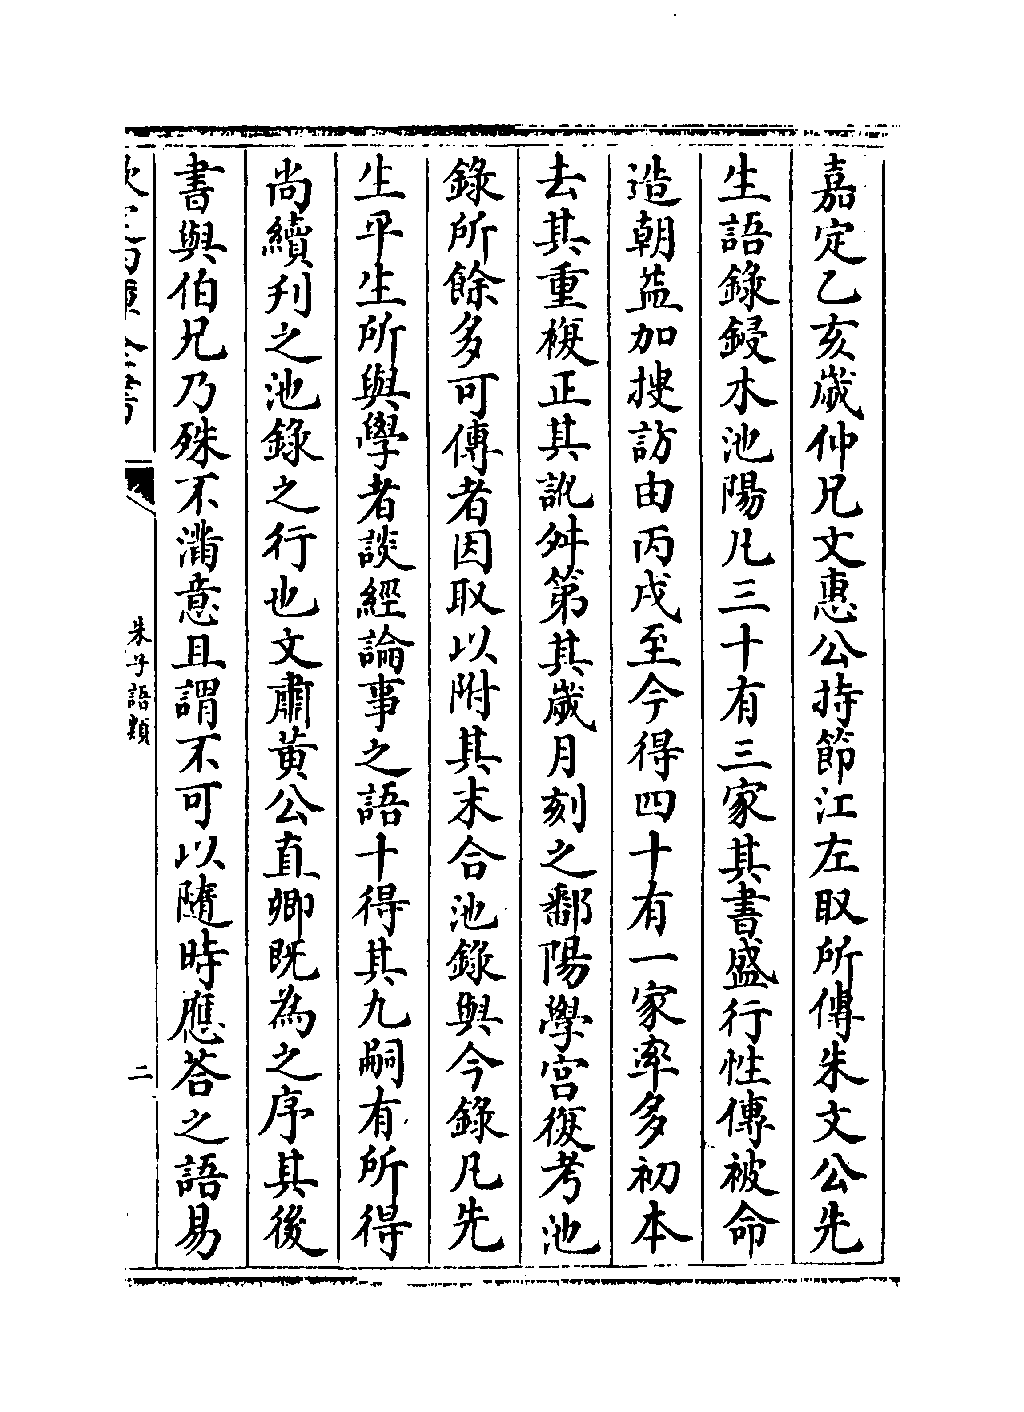 嘉定乙亥歲仲兄文惠公持節江左取所傳朱文公先
生語錄鋟木池陽凡三十有三家其書盛行性傳被命
造朝益加搜訪由丙戌至今得四十有一家率多初本
去其重複正其訛舛第其歲月刻之鄱陽學宫復考池
錄所餘多可傳者因取以附其末合池錄與今錄凡先
生平生所與學者談經論事之語十得其九嗣有所得
尚續刋之池錄之行也文肅黄公直卿既為之序其後
書與伯兄乃殊不滿意且謂不可以隨時應荅之語易
欽定四庫全書
朱子語類
二